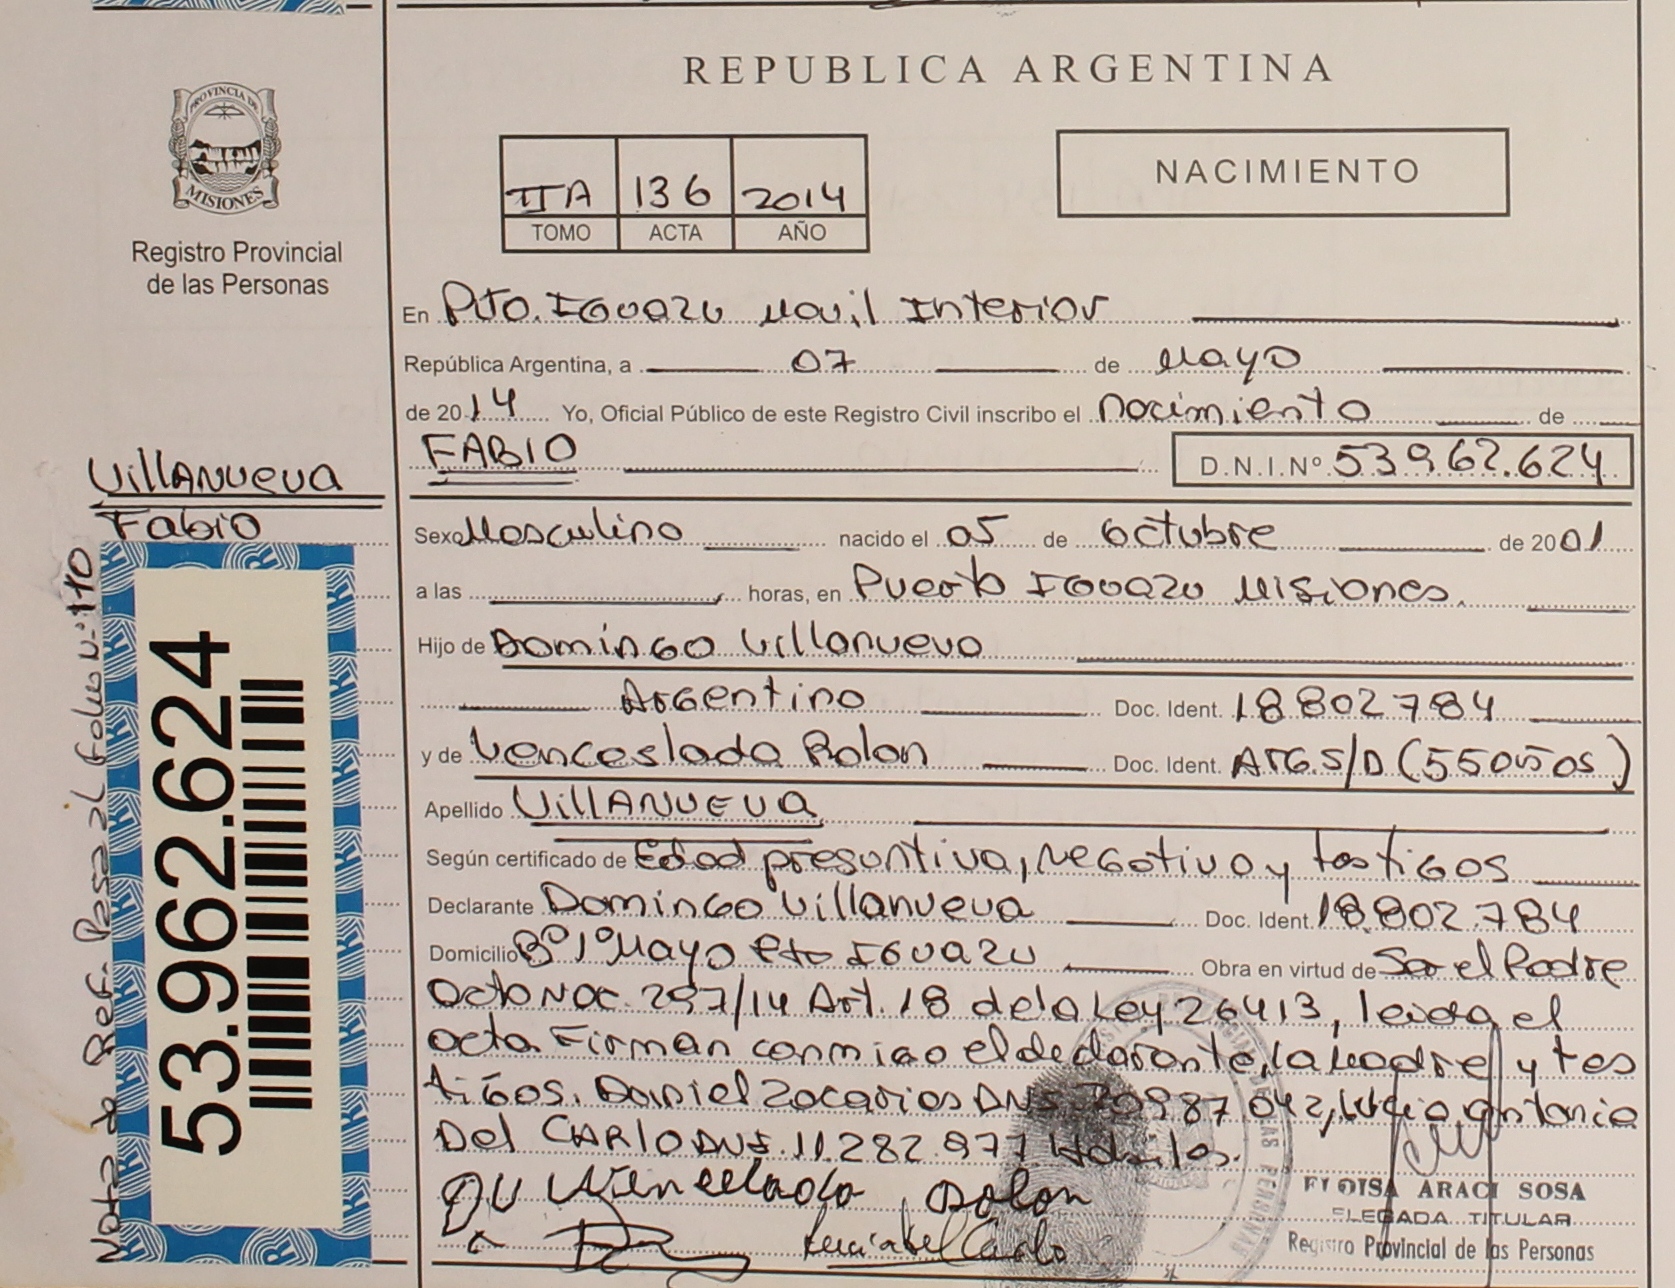 REPUBLICA ARGENTINA
PROVINCIA DE
MISIONES
Registro Provincial
de las Personas
IIA 136 2014
TOMO ACTA AÑO
NACIMIENTO
En Pto. IGUAZU Movil Interior
República Argentina, a 07 de Mayo
de 2014 Yo, Oficial Público de este Registro Civil inscribo el nacimiento de
FABIO D.N.I.Nº 53962.624
VillANUEVA
Fabio
Sexo Masculino nacido el 05 de Octubre de 2001
a las horas, en Puerto IGUAZU Misiones.
Hijo de Domingo Villanueva
Argentino Doc. Ident. 18802784
y de Venceslada Rolon Doc. Ident. ARG.S/D (55 años)
Apellido VillANUEVA
Según certificado de Edad presuntiva, negativo y testigos
Declarante Domingo Villanueva Doc. Ident. 18.802.784
Domicilio Bº 1º Mayo Pto IGUAZU Obra en virtud de Ser el Padre
Acta Nac. 297/14 Art. 18 de la Ley 26413, leida el
acta Firman conmigo el declarante, la Madre y tes
tigos. Daniel Zacarias DNI 087 042, antonia
Del CARlO DNI. 11.282.977 Habiles.
Wencellada Dolon
ELOISA ARACI SOSA
DELEGADA TITULAR
Registro Provincial de las Personas
53.962.624
Nota de Ref. Pasa al folio Nº 170